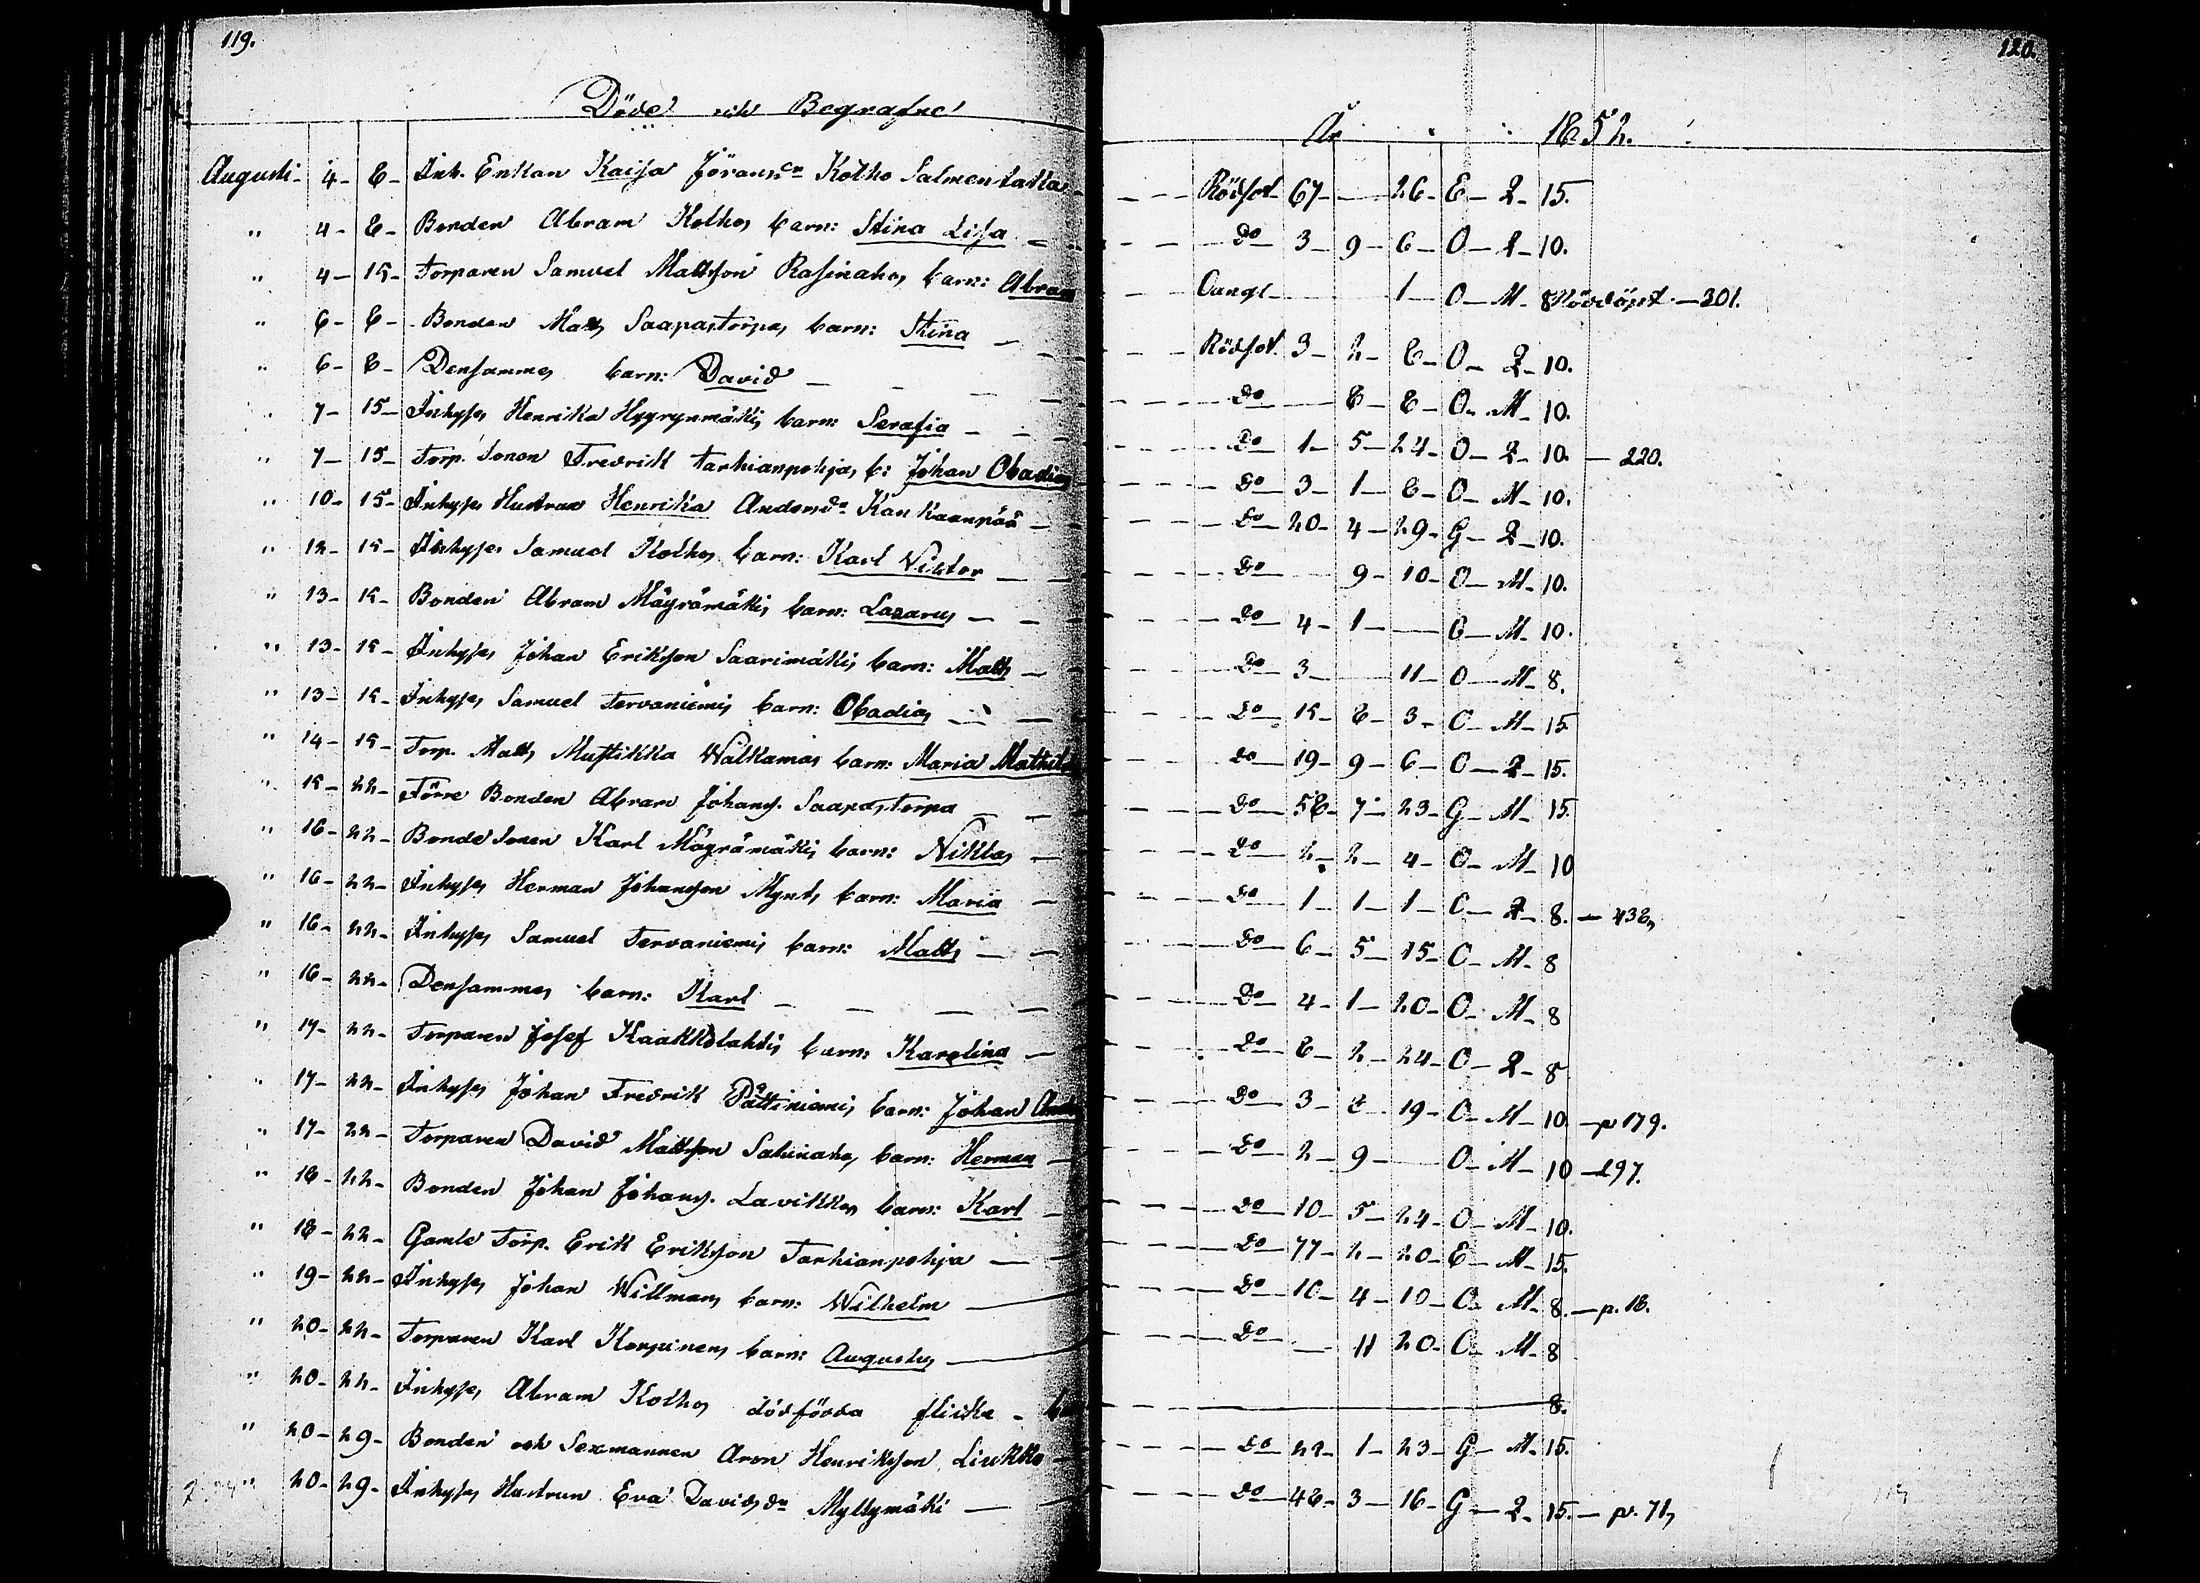 119.
120.
Döde och Begrafne
År 1852.
Augusti - 4 - 8 - Inh. Enkan Kaisa Jöransdr Kolho Salmentakka - Rödsot - 67 - 26 - E - Q - 15.
" 4 - 8 - Bonden Abram Kolhos barn: Stina Lisa - Do - 3 - 9 - 6 - O - Q - 10.
" 4 - 15 - Torparen Samuel Mattsson Rasinahos barn: Abram - Oangl - 1 - O - M - 8 Nöddöpt - 301.
" 6 - 8 - Bonden Matts Saapastorpas barn: Stina - Rödsot. 3 - 2 - 8 - O - Q - 10.
" 6 - 8 - Densammes barn: David - Do - 8 - 8 - O - M - 10.
" 7 - 15 - Inhyses Henrika Hyyrynmäkis barn: Serafia - Do - 1 - 5 - 24 - O - Q - 10. - 220.
" 7 - 15 - Torp. Sonen Fredrik Tarhianpohjas b: Johan Obadias - Do - 3 - 1 - 8 - O - M - 10.
" 10 - 15 - Inhyses Hustrun Henrika Andersdr Kankaanpää - Do - 20 - 4 - 29 - G - Q - 10.
" 12 - 15 - Inhyses Samuel Kolhos barn: Karl Viktor - Do - 9 - 10 - O - M - 10.
" 13 - 15 - Bonden Abram Mäyrämäkis barn: Lazarus - Do - 4 - 1 - O - M - 10.
" 13 - 15 - Inhyses Johan Eriksson Saarimäkis barn: Matts - Do - 3 - 11 - O - M - 8.
" 13 - 15 - Inhyses Samuel Tervaniemis barn: Obadias - Do - 15 - 8 - 3 - O - M - 15.
" 14 - 15 - Torp. Matts Mustikka Walkamas barn: Maria Mathilda - Do - 19 - 9 - 6 - O - Q - 15.
" 15 - 22 - Förre Bonden Abram Johanss. Saapastorpa - Do - 58 - 7 - 23 - G - M - 15.
" 16 - 22 - Bonde Sonen Karl Mäyrämäkis barn: Niklas - Do - 2 - 2 - 4 - O - M - 10
" 16 - 22 - Inhyses Herman Johansson Mynts barn: Maria - Do - 1 - 1 - 1 - O - Q - 8. - 438,
" 16 - 22 - Inhyses Samuel Tervaniemis barn: Matts - Do - 6 - 5 - 15 - O - M - 8
" 16 - 22 - Densammes barn: Karl - Do - 4 - 1 - 20 - O - M - 8
" 17 - 22 - Torparen Josef Kaakkolahtis barn: Karolina - Do - 8 - 2 - 24 - O - Q - 8
" 17 - 22 - Inhyses Johan Fredrik Pättiniemis barn: Johan - Do - 3 - 8 - 19 - O - M - 10. - p 179.
" 17 - 22 - Torparen David Mattsson Sahinahos barn: Herman - Do - 2 - 9 - O - M - 10 - 297.
" 18 - 22 - Bonden Johan Johanss. Lavikkos barn: Karl - Do - 10 - 5 - 24 - O - M - 10.
" 18 - 22 - Gamle Torp. Erik Eriksson Tarhianpohja - Do - 77 - 2 - 20 - E - M - 15.
" 19 - 22 - Inhyses Johan Willmans barn: Wilhelm - Do - 10 - 4 - 10 - O - M - 8. - p. 18.
" 20 - 22 - Torparen Karl Korpinens barn: Augustus - Do - 11 20 - O - M - 8
" 20 - 22 - Inhyses Abram Kolhos dödfödda flicka - 8.
" 20 - 29 - Bonden och Sexmannen Aron Henriksson Liukko - Do - 42 - 1 - 23 - G - M - 15.
" 20 - 29 - Inhyses Hustrun Eva Davidsdr Myllymäki - Do - 48 - 3 - 16 - G - Q - 15. - p. 71,